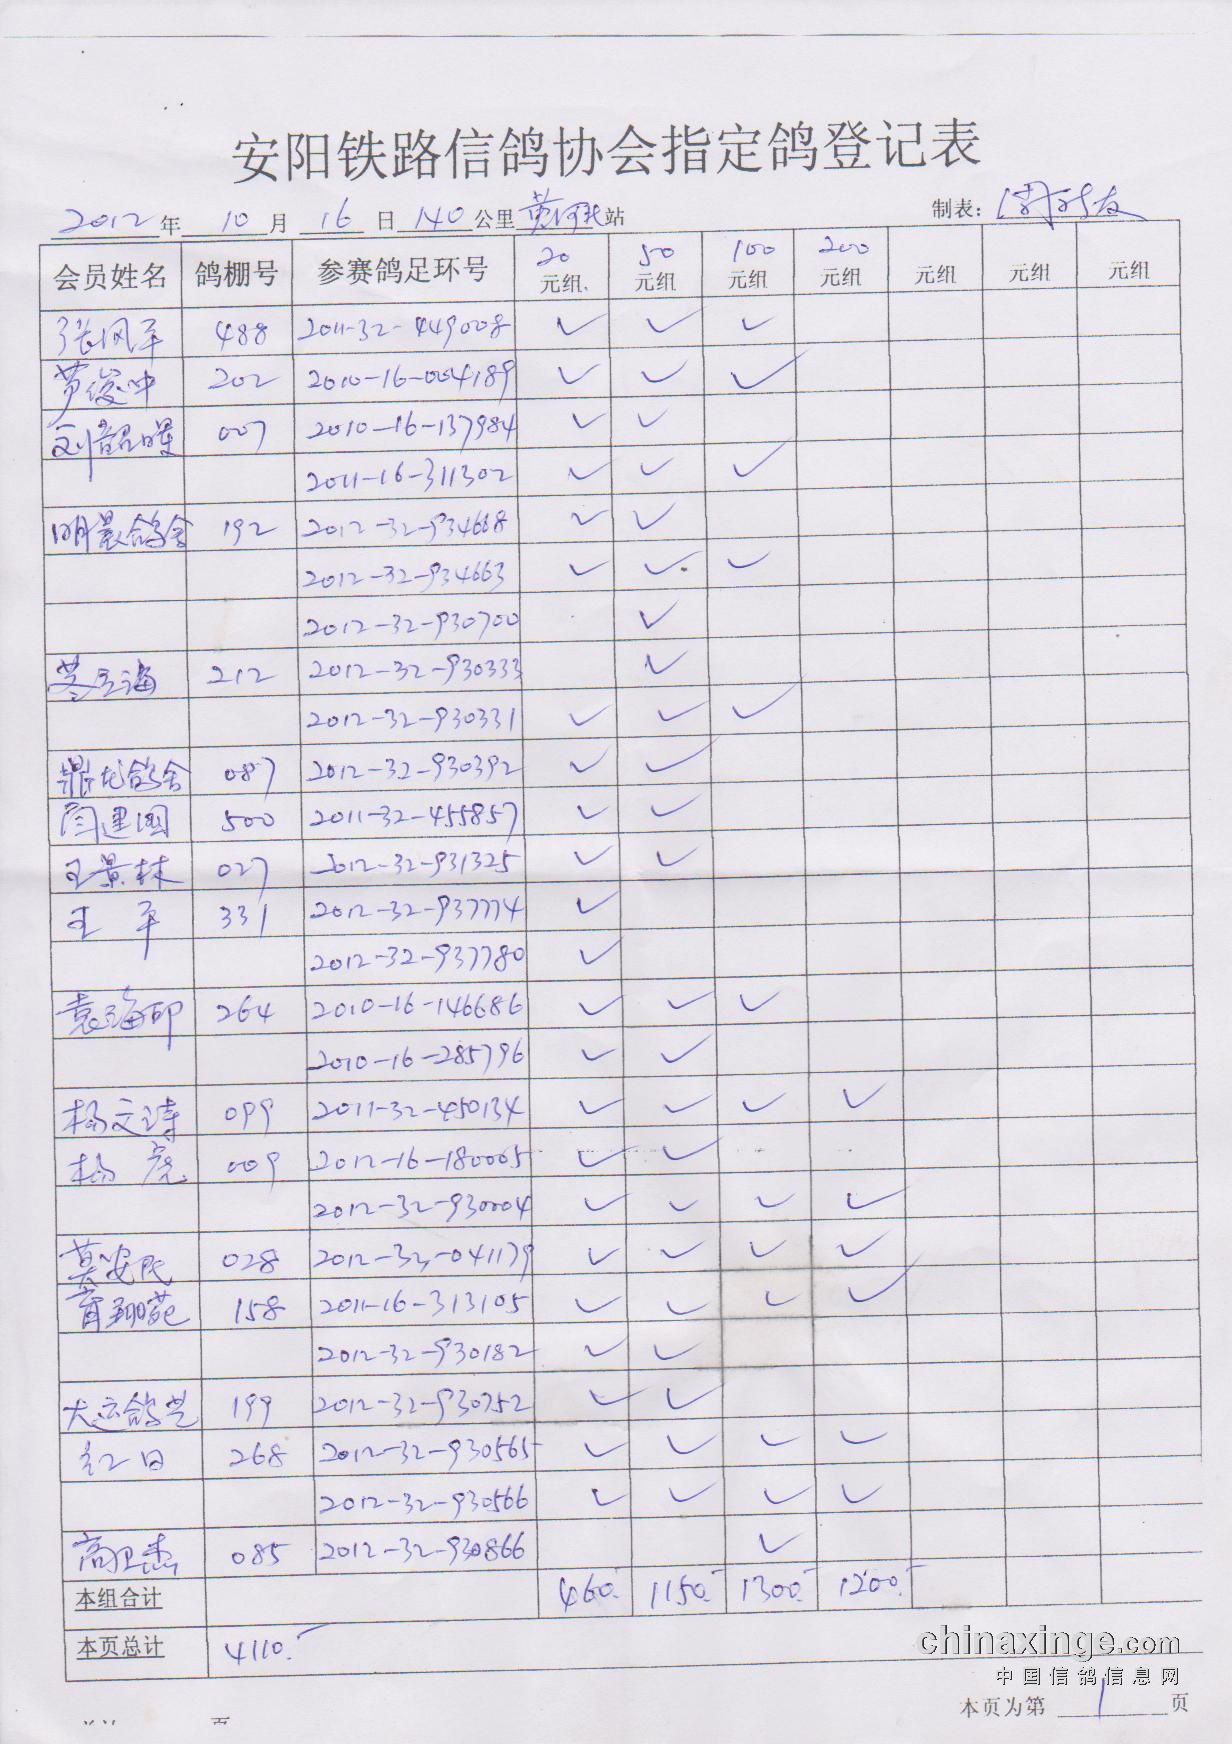 安阳铁路信鸽协会指定鸽登记表
2012年 10月 16日 140公里 站 制表:
会员姓名 鸽棚号 参赛鸽足环号 20元组 50元组 100元组 200元组 元组 元组 元组
张风平 488 2011-32-449008 ✓ ✓ ✓
芦俊冲 202 2010-16-004189 ✓ ✓ ✓
刘韶星 007 2010-16-137984 ✓ ✓
2011-16-311302 ✓ ✓ ✓
明晨鸽舍 192 2012-32-934668 ✓ ✓
2012-32-934663 ✓ ✓ ✓
2012-32-930700 ✓
212 2012-32-930333 ✓
2012-32-930331 ✓ ✓ ✓
鼎龙鸽舍 087 2012-32-930392 ✓ ✓
闫建国 500 2011-32-455857 ✓ ✓
王景林 027 2012-32-931325 ✓ ✓
王平 331 2012-32-937774 ✓
2012-32-937780 ✓
袁海印 264 2010-16-146686 ✓ ✓ ✓
2010-16-285796 ✓ ✓
杨文涛 099 2011-32-450134 ✓ ✓ ✓ ✓
杨亮 009 2012-16-180005 ✓ ✓
2012-32-930004 ✓ ✓ ✓ ✓
莫安民 028 2012-32-041179 ✓ ✓ ✓ ✓
育翔苑 158 2011-16-313105 ✓ ✓ ✓ ✓
2012-32-930182 ✓ ✓
大运鸽 199 2012-32-930752 ✓ ✓
红日 268 2012-32-930565 ✓ ✓ ✓ ✓
2012-32-930566 ✓ ✓ ✓ ✓
高卫杰 085 2012-32-930866 ✓
本组合计 460. 1150. 1300. 1200.
本页总计 4110.
chinaxinge.com
中国信鸽信息网
本页为第 1 页
页